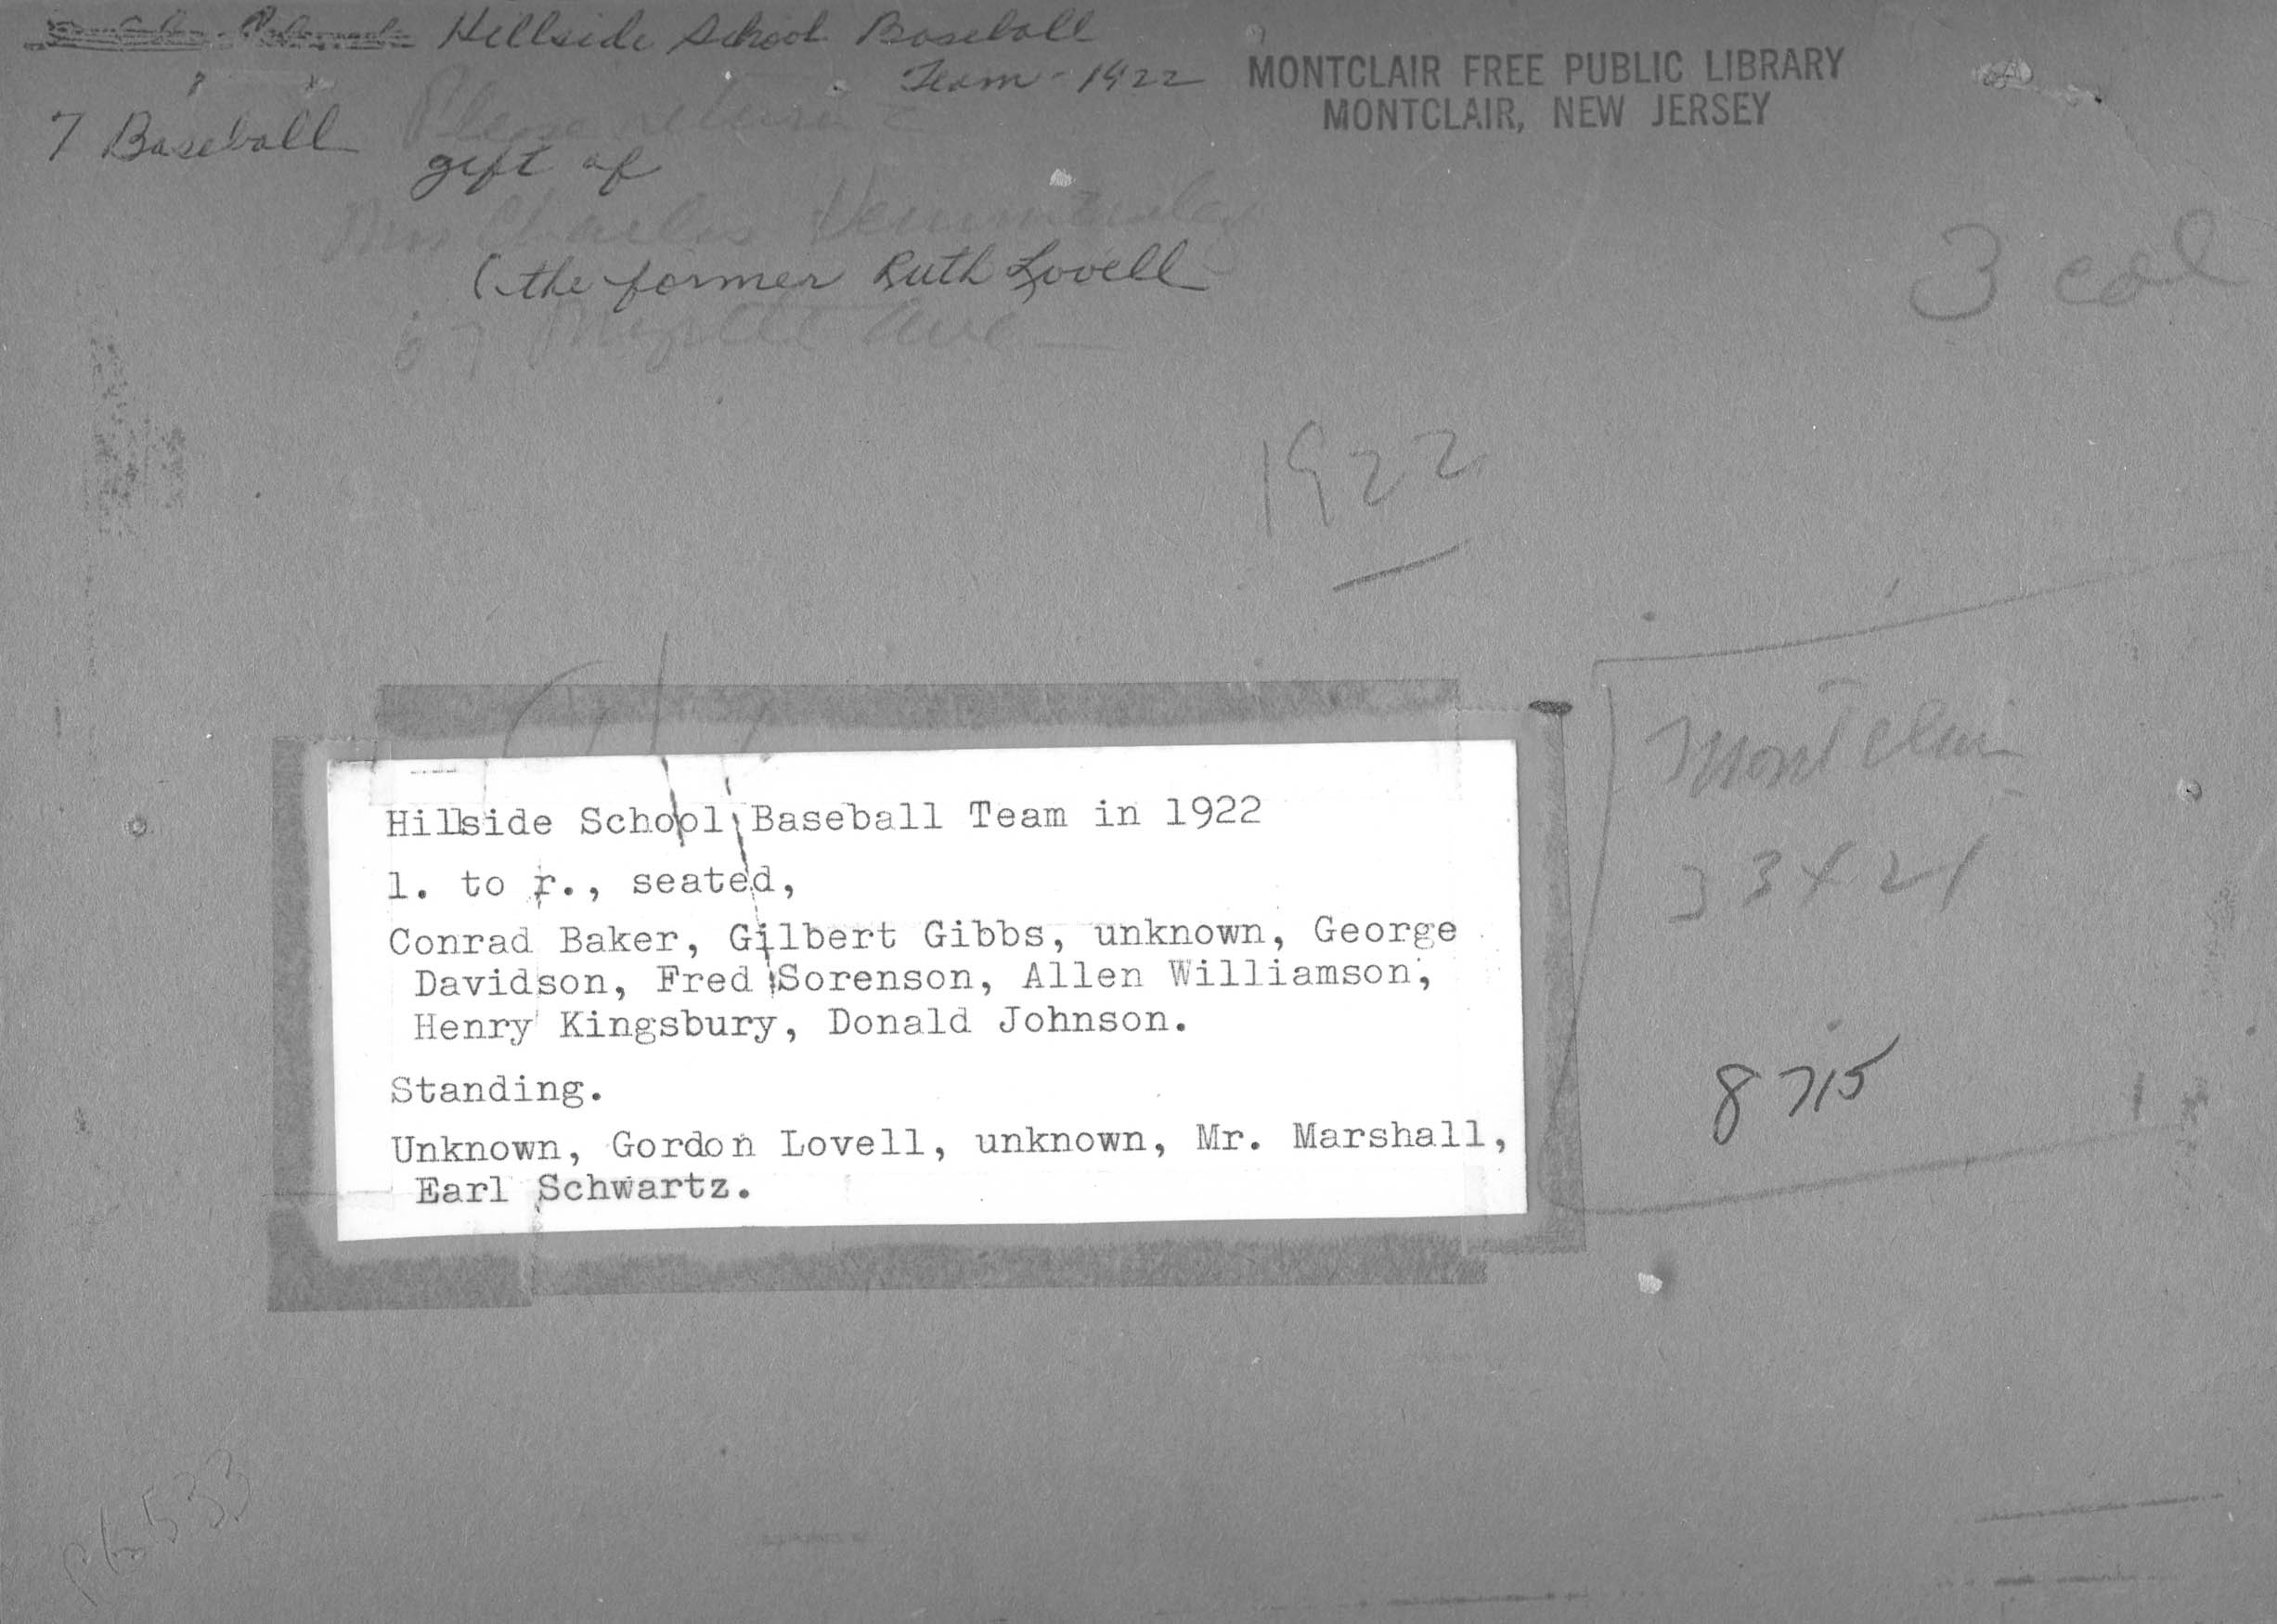 Hillside School Baseball
Team - 1922
MONTCLAIR FREE PUBLIC LIBRARY
MONTCLAIR, NEW JERSEY
7 Baseball
Please return
gift of
Mrs Charles
(the former Ruth Lovell
67 Myrtle Ave
3 col
1922
Hillside School Baseball Team in 1922
l. to r., seated,
Conrad Baker, Gilbert Gibbs, unknown, George
Davidson, Fred Sorenson, Allen Williamson,
Henry Kingsbury, Donald Johnson.
Standing.
Unknown, Gordon Lovell, unknown, Mr. Marshall,
Earl Schwartz.
Montclair
33x21
8715
P6533